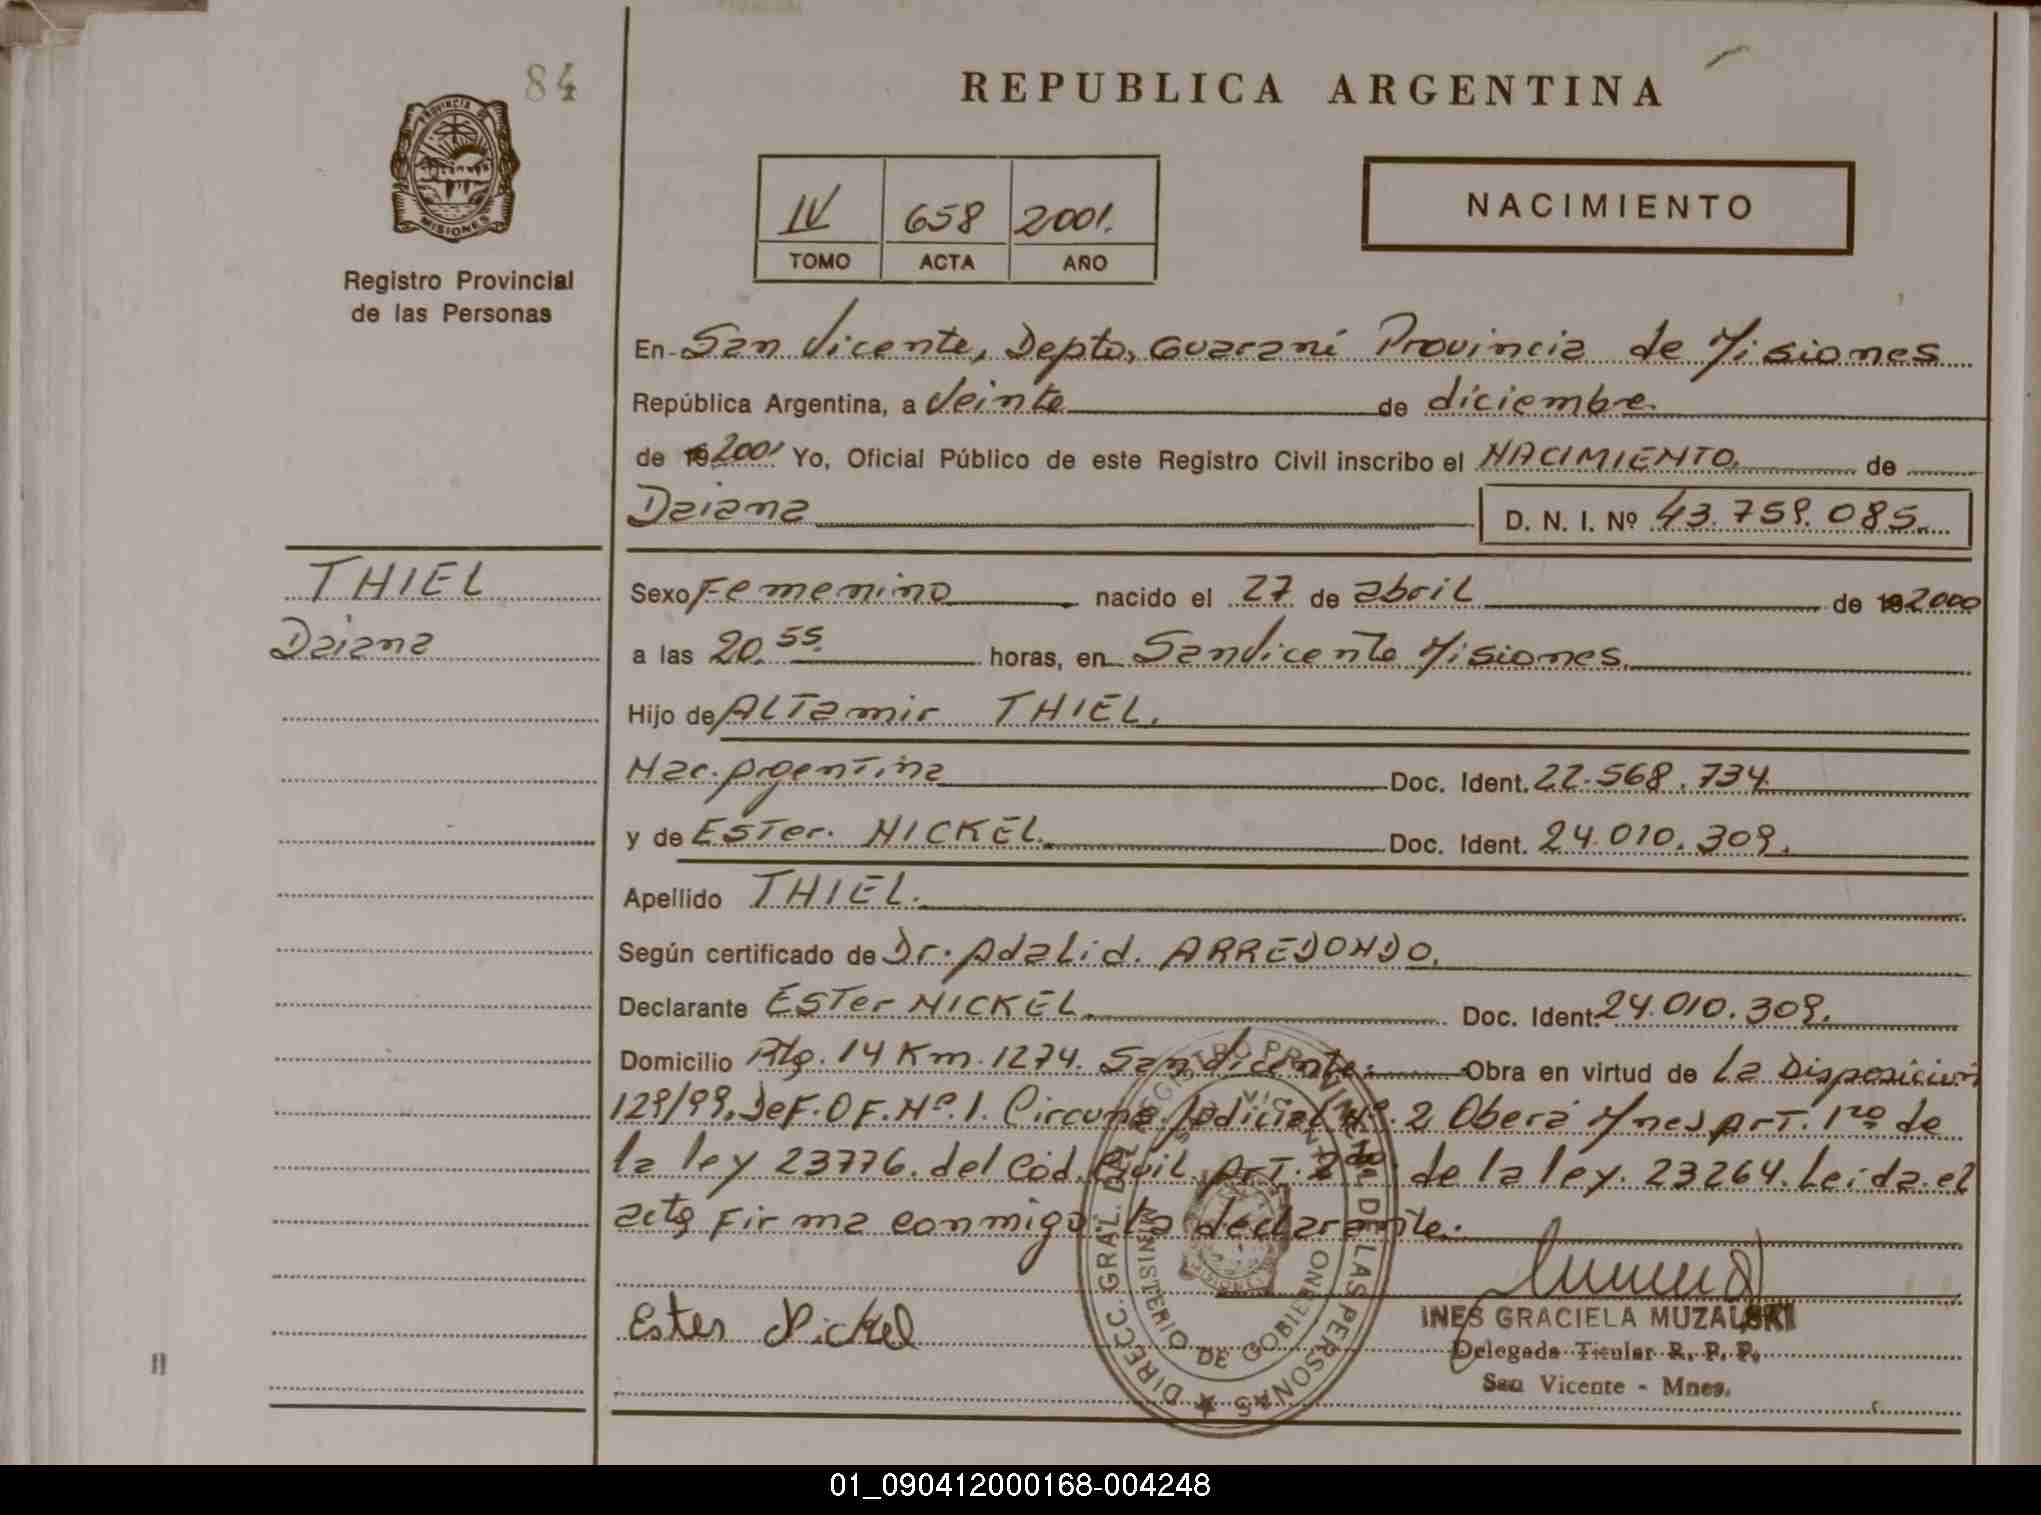 84
REPUBLICA ARGENTINA
PROVINCIA DE
MISIONES
Registro Provincial
de las Personas
IV 658 2001.
TOMO ACTA AÑO
NACIMIENTO
En San Vicente, Depto, Guaraní Provincia de Misiones
República Argentina, a Veinte de diciembre
de 19 2001 Yo, Oficial Público de este Registro Civil inscribo el NACIMIENTO de
Daiana D. N. I. Nº 43.759.085.
THIEL
Daiana
Sexo Femenino nacido el 27 de abril de 19 2000
a las 20.55. horas, en San Vicente Misiones.
Hijo de ALTamir THIEL.
Nac. Argentina Doc. Ident. 22.568.734
y de ESTer. NICKEL. Doc. Ident. 24.010.309.
Apellido THIEL.
Según certificado de Dr. Adalid. ARREDONDO.
Declarante ESTer NICKEL. Doc. Ident. 24.010.309.
Domicilio Rta. 14 Km. 1274. San Vicente. Obra en virtud de La Disposicion
129/99. Def. OF. Nº. 1. Circuns. Judicial Nº. 2 Oberá Mnes ArT. 1ro de
la ley 23776. del Cód. Civil ArT. 2do. de la ley. 23264. Leida el
acta Firma conmigo la declarante.
Ester Nickel
INES GRACIELA MUZALSKI
Delegada Titular R. P. P.
San Vicente - Mnes.
DIRECC. GRAL. DEL REGISTRO PROVINCIAL DE LAS PERSONAS
MINISTERIO DE GOBIERNO
SAN VICENTE
MISIONES
01_090412000168-004248